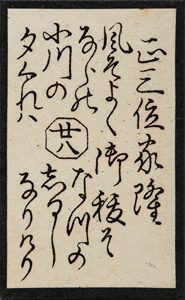 正三位家隆
風そよく
ならの
小川の
夕くれハ
廿八
御祓そ
なつの
志るし
なりける